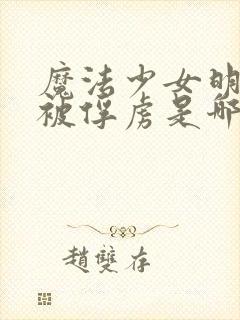 魔法少女明
被俘虏是哪
趙雙存